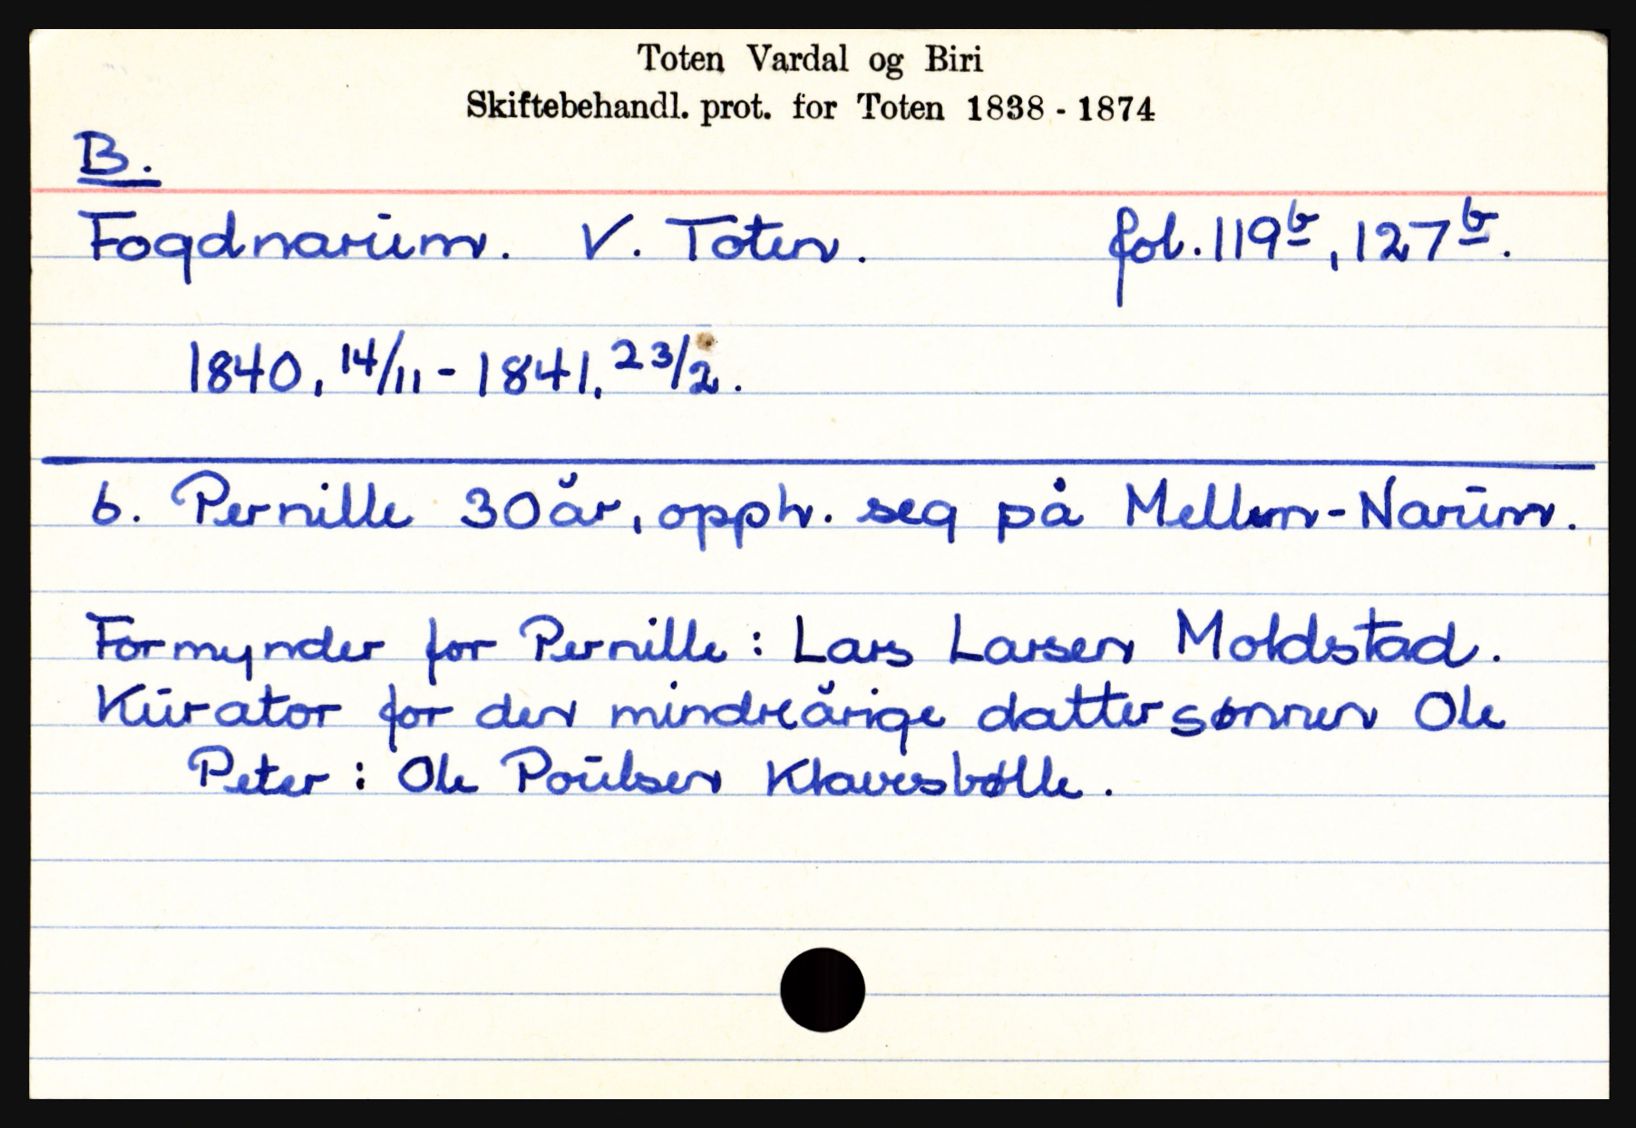 Toten Vardal og Biri
Skiftebehandl. prot. for Toten 1838 - 1874
B.
Fogdnarum. V. Toten. fol. 119b, 127b.
1840, 14/11 - 1841, 23/2.
6. Pernille 30 år, opph. seg på Mellem-Narum.
Formynder for Pernille : Lars Larsen Moldstad.
Kurator for den mindreårige dattersønnen Ole
Peter : Ole Poulsen Klavesbølle.